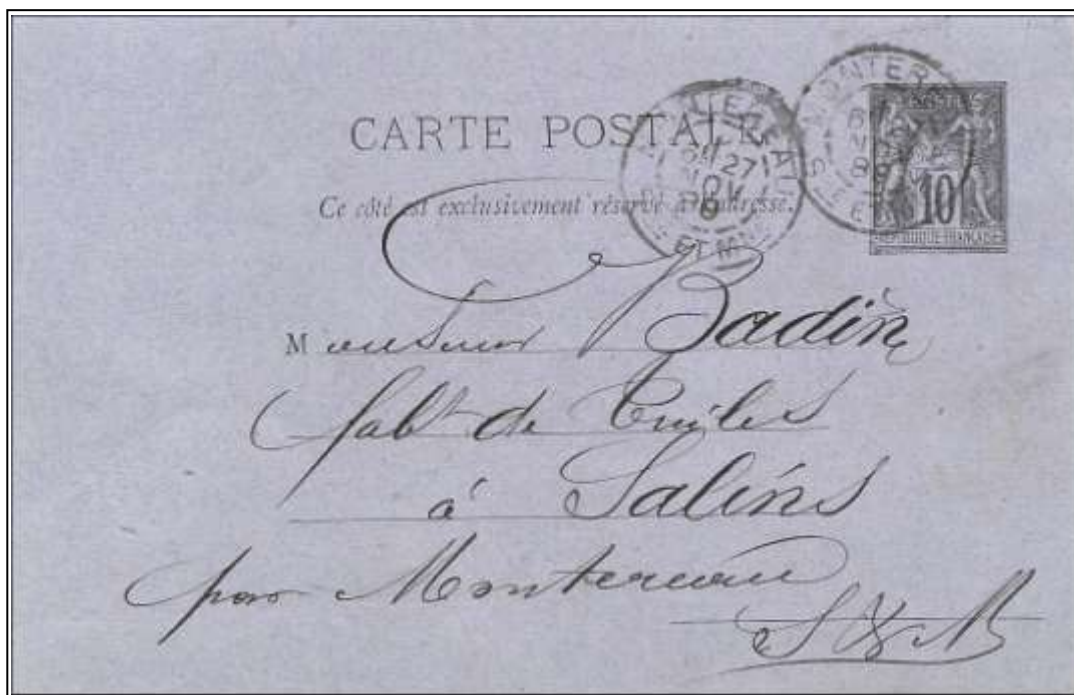 CARTE POSTALE
Ce côté est exclusivement réservé à l'adresse.
MONTEREAU
27
NOV
ET MNE
MONTER
S
ET
10
REPUBLIQUE FRANCAISE
Monsieur Badin
fabt de Tuiles
à Salins
par Montereau
S & M